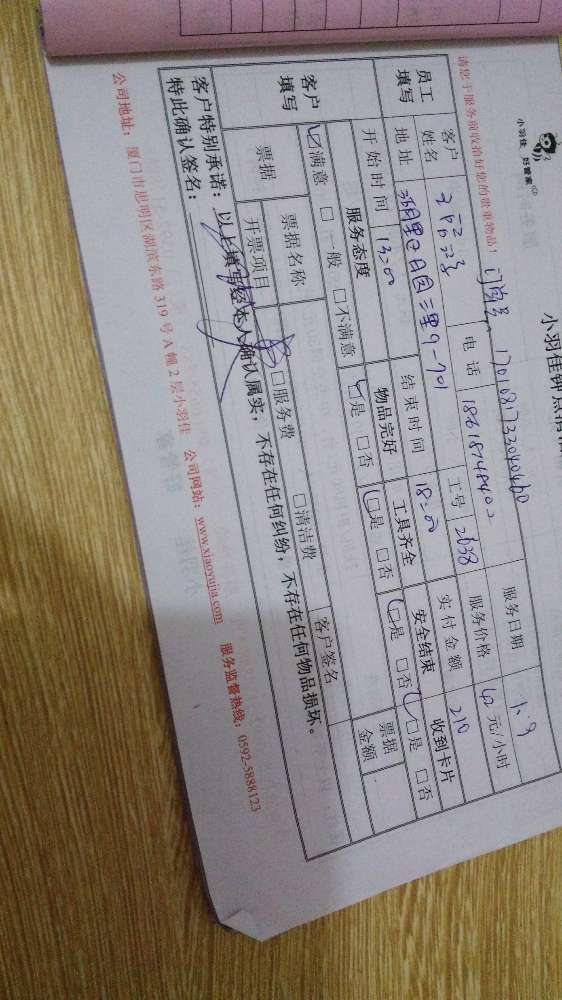 小羽佳 好管家
小羽佳钟点清
请您于服务前收拾好您的贵重物品！
17008173304060
服务日期 1.9
员工填写
客户姓名 电话 18618748402 工号 2638 服务价格 42 元/小时
地址 9-701 实付金额 210
开始时间 13:00 结束时间 18:00 收到卡片
客户填写
服务态度 物品完好 工具齐全 安全结束 □是 □否
☑满意 □一般 □不满意 □是 □否 □是 □否 □是 □否
票据 票据名称 客户签名 票据金额
开票项目 □服务费 □清洁费
客户特别承诺：以上填写经本人确认属实，不存在任何纠纷，不存在任何物品损坏。
特此确认签名：
公司地址：厦门市思明区湖滨东路 319 号 A 幢 2 层小羽佳 公司网站：www.xiaoyujia.com 服务监督热线：0592-5888123